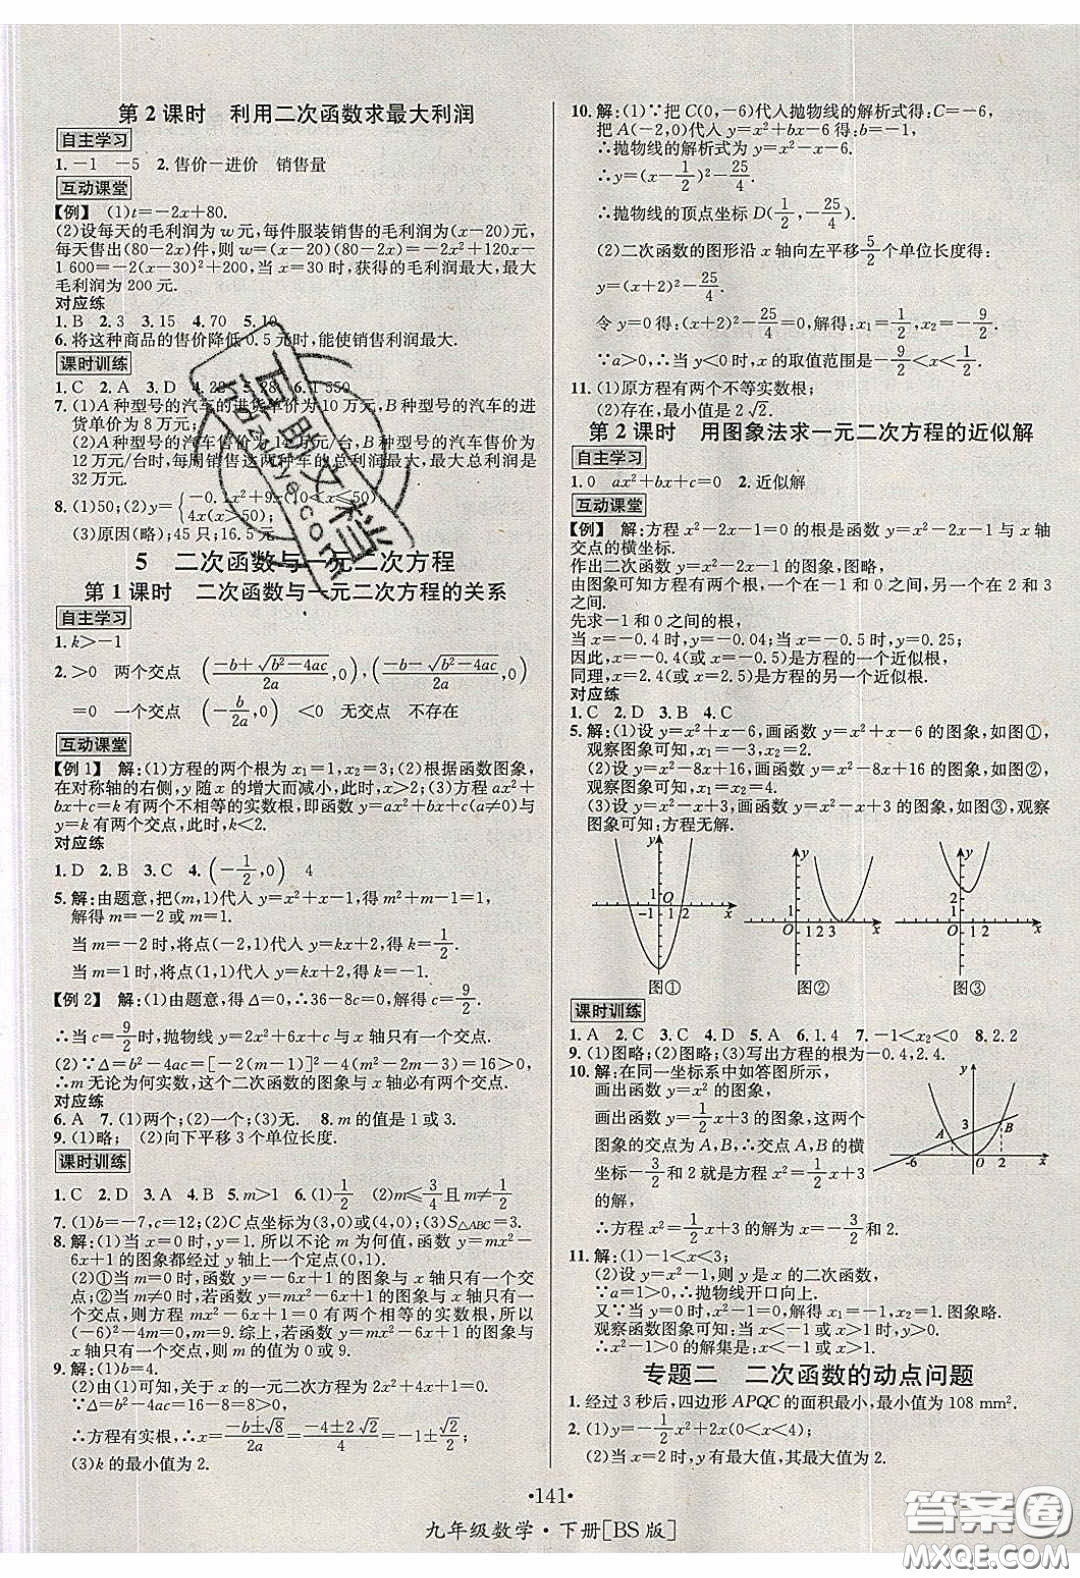 第2课时 利用二次函数求最大利润
自主学习
1. －1 －5 2. 售价－进价 销售量
互动课堂
【例】 (1)t=－2x+80.
(2)设每天的毛利润为 w 元,每件服装销售的毛利润为(x－20)元,
每天售出(80－2x)件,则 w=(x－20)(80－2x)=－2x²+120x－
1 600=－2(x－30)²+200,当 x=30 时,获得的毛利润最大,最大
毛利润为 200 元.
对应练
1. B 2. 3 3. 15 4. 70 5. 10
6. 将这种商品的售价降低 0.5 元时,能使销售利润最大.
课时训练
1. C 2. A 3. D 4. 22 5. 28 6. 1 350
7. (1)A 种型号的汽车的进货单价为 10 万元,B 种型号的汽车的进
货单价为 8 万元;
(2)A 种型号的汽车售价为 14 万元/台,B 种型号的汽车售价为
12 万元/台时,每周销售这两种车的总利润最大,最大总利润是
32 万元.
8. (1)50;(2)y={－0.1x²+9x(10<x≤50)
4x(x>50);
(3)原因(略);45 只;16.5 元.
5 二次函数与一元二次方程
第1课时 二次函数与一元二次方程的关系
自主学习
1. k>－1
2. >0 两个交点 ((－b+√(b²－4ac))/2a,0),((－b－√(b²－4ac))/2a,0)
=0 一个交点 (－b/2a,0) <0 无交点 不存在
互动课堂
【例 1】 解:(1)方程的两个根为 x₁=1,x₂=3;(2)根据函数图象,
在对称轴的右侧,y 随 x 的增大而减小,此时,x>2;(3)方程 ax²+
bx+c=k 有两个不相等的实数根,即函数 y=ax²+bx+c(a≠0)与
y=k 有两个交点,此时,k<2.
对应练
1. D 2. B 3. C 4. (－1/2,0) 4
5. 解:由题意,把(m,1)代入 y=x²+x－1,得 m²+m－1=1,
解得 m=－2 或 m=1.
当 m=－2 时,将点(－2,1)代入 y=kx+2,得 k=1/2.
当 m=1 时,将点(1,1)代入 y=kx+2,得 k=－1.
【例 2】 解:(1)由题意,得 Δ=0,∴36－8c=0,得 c=9/2.
∴当 c=9/2时,抛物线 y=2x²+6x+c 与 x 轴只有一个交点.
(2)∵Δ=b²－4ac=[－2(m－1)]²－4(m²－2m－3)=16>0,
∴m 无论为何实数,这个二次函数的图象与 x 轴必有两个交点.
对应练
6. A 7. (1)两个;(2)一个;(3)无. 8. m 的值是 1 或 3.
9. (1)略; (2)向下平移 3 个单位长度.
课时训练
1. C 2. D 3. A 4. B 5. m>1 6. (1)1/2 (2)m≤3/4且 m≠1/2
7. (1)b=－7,c=12;(2)C 点坐标为(3,0)或(4,0);(3)S△ABC=3.
8. 解:(1)当 x=0 时,y=1. 所以不论 m 为何值,函数 y=mx²－
6x+1 的图象都经过 y 轴上一个定点(0,1).
(2)①当 m=0 时,函数 y=－6x+1 的图象与 x 轴只有一个交
点;②当 m≠0 时,若函数 y=mx²－6x+1 的图象与 x 轴只有一
个交点,则方程 mx²－6x+1=0 有两个相等的实数根,所以
(－6)²－4m=0,m=9.综上,若函数 y=mx²－6x+1 的图象与
x 轴只有一个交点,则 m 的值为 0 或 9.
9. 解:(1)b=4.
(2)由(1)可知,关于 x 的一元二次方程为 2x²+4x+1=0.
∵Δ=b²－4ac=16－8=8>0,
∴方程有实根,∴x=(－b±√8)/2a=(－4±2√2)/4=－1±√2/2.
(3)k 的最小值为 2.
10. 解:(1)∵把 C(0,－6)代入抛物线的解析式得:C=－6,
把 A(－2,0)代入 y=x²+bx－6 得:b=－1,
∴抛物线的解析式为 y=x²－x－6.
∴y=(x－1/2)²－25/4.
∴抛物线的顶点坐标 D(1/2,－25/4).
(2)二次函数的图形沿 x 轴向左平移5/2个单位长度得:
y=(x+2)²－25/4.
令 y=0 得:(x+2)²－25/4=0,解得:x₁=1/2,x₂=－9/2.
∵a>0,∴当 y<0 时,x 的取值范围是－9/2<x<1/2.
11. (1)原方程有两个不等实数根;
(2)存在,最小值是 2√2.
第2课时 用图象法求一元二次方程的近似解
自主学习
1. 0 ax²+bx+c=0 2. 近似解
互动课堂
【例】 解:方程 x²－2x－1=0 的根是函数 y=x²－2x－1 与 x 轴
交点的横坐标.
作出二次函数 y=x²－2x－1 的图象,图略,
由图象可知方程有两个根,一个在－1 和 0 之间,另一个在 2 和 3
之间.
先求－1 和 0 之间的根,
当 x=－0.4 时,y=－0.04;当 x=－0.5 时,y=0.25;
因此,x=－0.4(或 x=－0.5)是方程的一个近似根,
同理,x=2.4(或 x=2.5)是方程的另一个近似根.
对应练
1. C 2. D 3. B 4. C
5. 解:(1)设 y=x²+x－6,画函数 y=x²+x－6 的图象,如图①,
观察图象可知,x₁=－3,x₂=2.
(2)设 y=x²－8x+16,画函数 y=x²－8x+16 的图象,如图②,
观察图象可知,x₁=x₂=4.
(3)设 y=x²－x+3,画函数 y=x²－x+3 的图象,如图③,观察
图象可知:方程无解.
y 1 O －1 1 2 x
图①
y 1 2 3 x
图②
y 2 1 1 2 x
图③
课时训练
1. A 2. C 3. C 4. D 5. A 6. 1.4 7. －1<x₂<0 8. 2.2
9. (1)图略;(2)图略;(3)写出方程的根为－0.4,2.4.
10. 解:在同一坐标系中如答图所示,
画出函数 y=x² 的图象,
画出函数 y=1/2x+3 的图象,这两个
图象的交点为 A,B,∴交点 A,B 的横
坐标－3/2和 2 就是方程 x²=1/2x+3
的解,
∴方程 x²=1/2x+3 的解为 x=－3/2和 2.
y A 3 B －6 O 2 x
11. 解:(1)－1<x<3;
(2)设 y=x²－1,则 y 是 x 的二次函数,
∵a=1>0,∴抛物线开口向上.
又∵当 y=0 时,x²－1=0,解得 x₁=－1,x₂=1. 图象略.
观察函数图象可知:当 x<－1 或 x>1 时,y>0.
∴x²－1>0 的解集是:x<－1 或 x>1.
专题二 二次函数的动点问题
1. 经过 3 秒后,四边形 APQC 的面积最小,最小值为 108 mm².
2. (1)y=－1/2x²+2x(0<x<4);
(2)当 x=2 时,y 有最大值,其最大值为 2.
•141•
九年级数学·下册[BS版]
答案圈
MXQE.COM